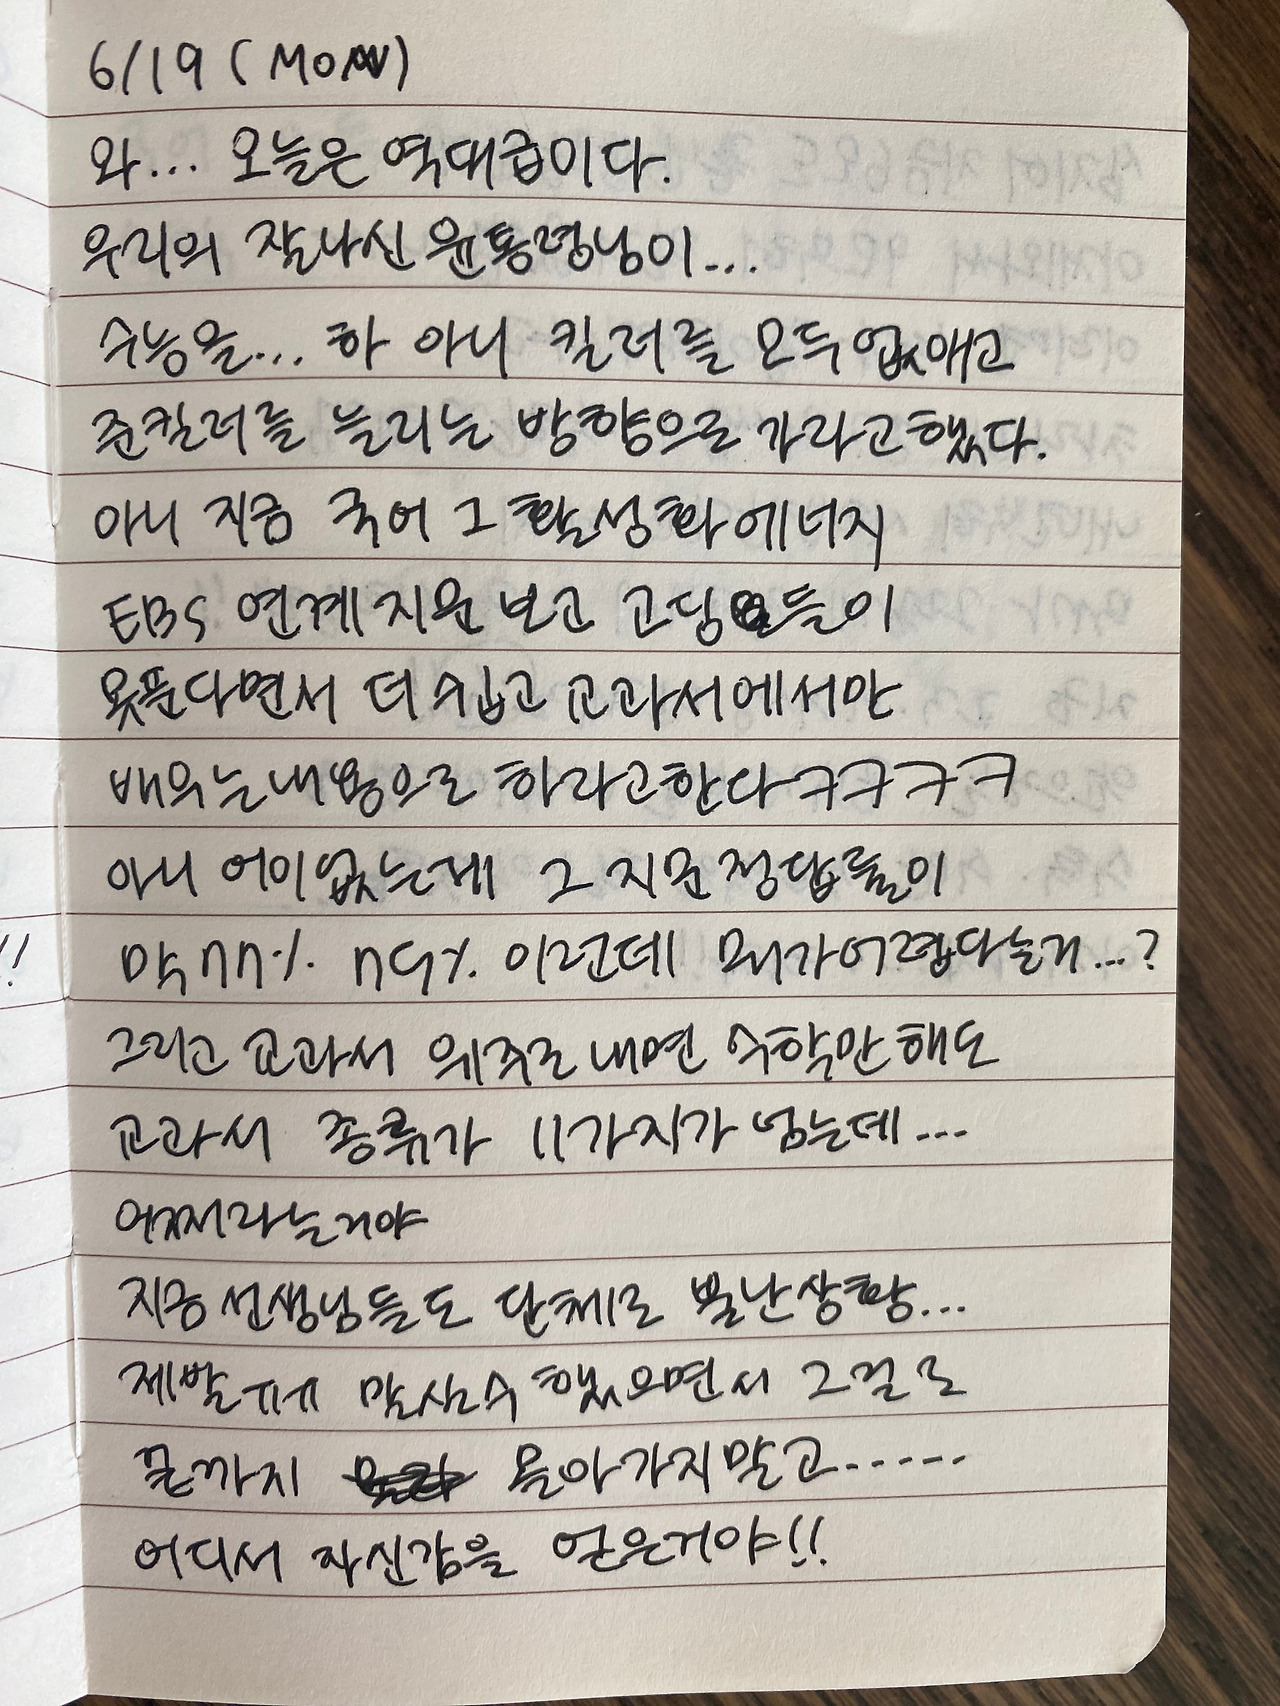 6/19 (MON)
와... 오늘은 역대급이다.
우리의 잘나신 윤통령님이...
수능을... 하 아니 킬러를 모두 없애고
준킬러를 늘리는 방향으로 가라고했다.
아니 지금 국어 그 활성화에너지
EBS 연계지문 보고 고딩들이
못푼다면서 더 쉽고 교과서에서만
배우는내용으로 하라고한다ㅋㅋㅋㅋ
아니 어이없는데 그 지문 정답률이
막 nn% n9% 이런데 뭐가어렵다는거...?
그리고 교과서 위주로내면 수학만해도
교과서 종류가 11가지가 넘는데...
어쩌라는거야
지금 선생님들도 단체로 불난상황...
제발ㅠㅠ 말실수 했으면서 그걸로
끝까지 몰아가지말고......
어디서 자신감을 얻은거야!!
!!